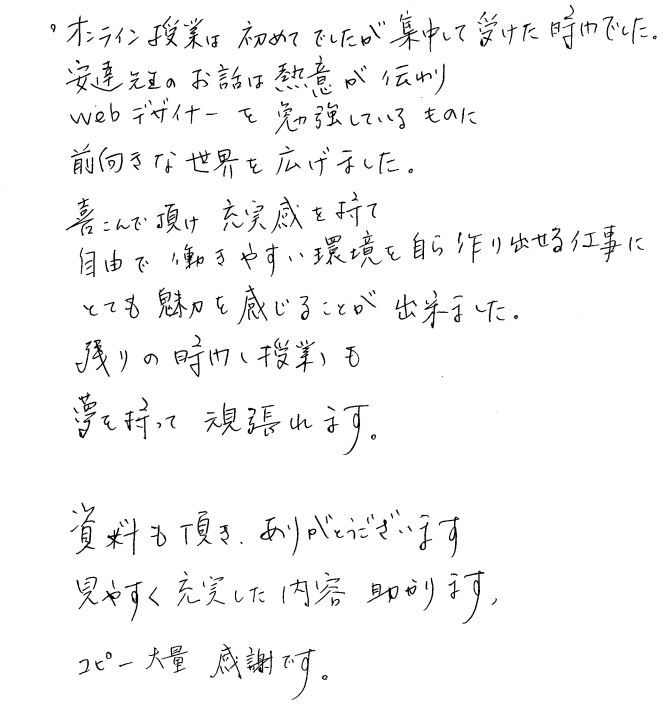 。オンライン授業は 初めてでしたが 集中して受けた時間でした。
安達先生のお話は 熱意が伝わり
webデザイナーを勉強しているものに
前向きな世界を広げました。
喜こんで頂け 充実感を持て
自由で働きやすい環境を自ら作り出せる仕事に
とても魅力を感じることが出来ました。
残りの時間(授業)も
夢を持って 頑張れます。
資料も頂き、ありがとうございます
見やすく充実した内容 助かります、
コピー大量 感謝です。